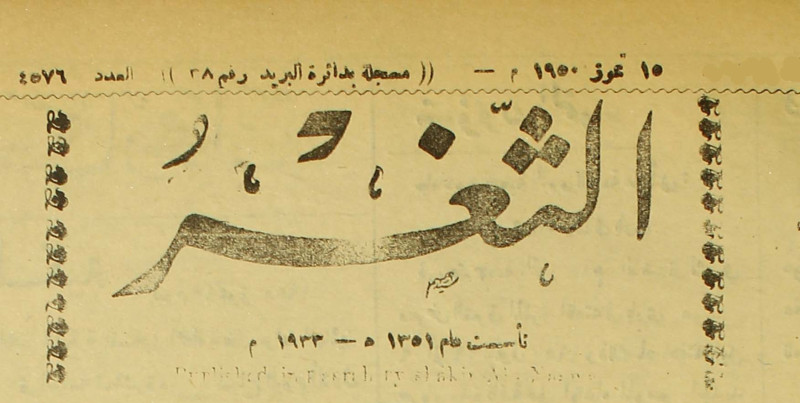 ١٥ تموز ١٩٥٠ م — (( مسجلة بدائرة البريد رقم ٢٨ )) العدد ٤٥٧٦
الثغر
تأسست عام ١٣٥١ ه — ١٩٣٣ م